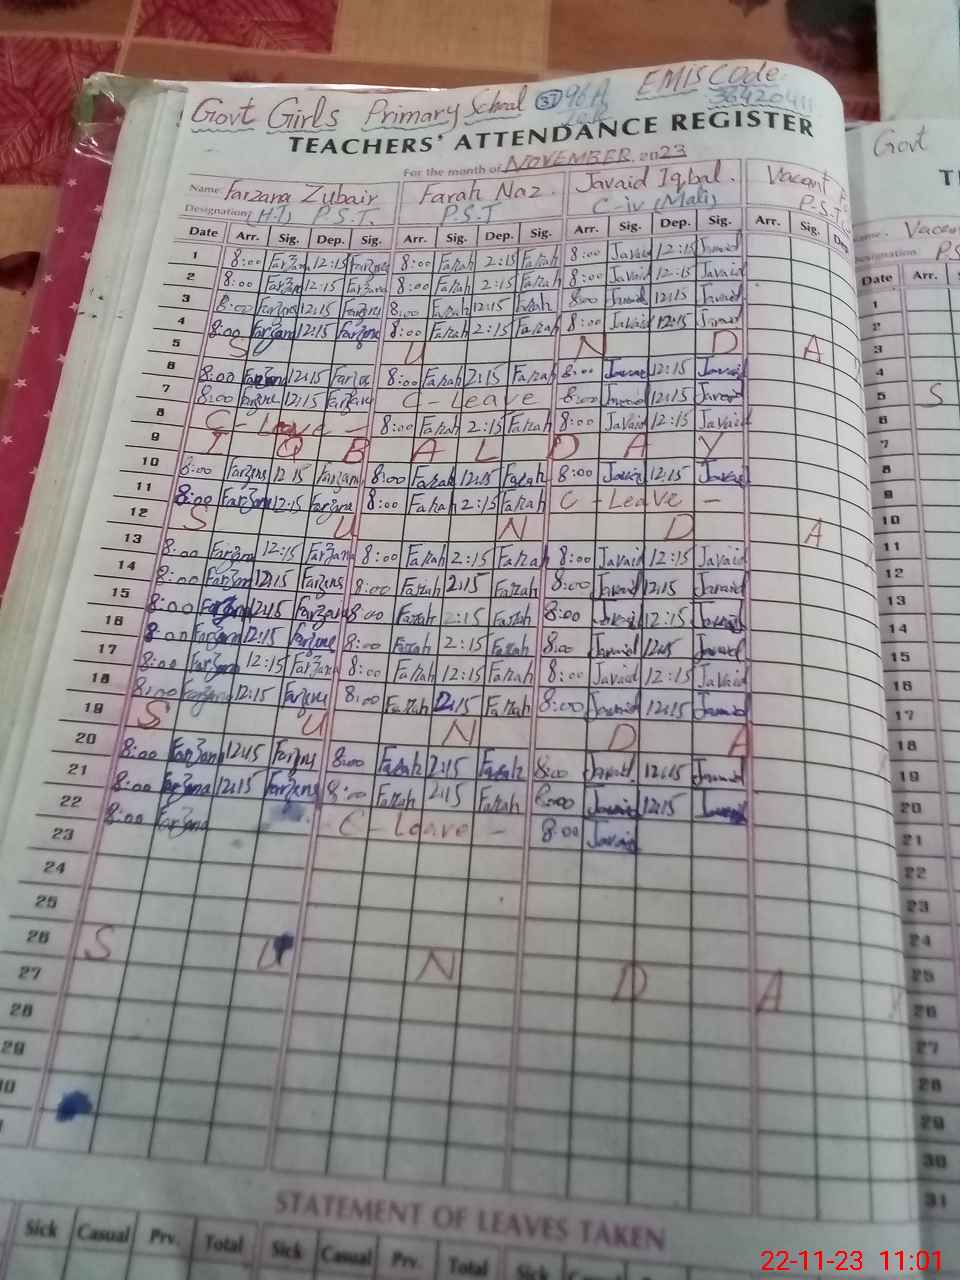 Govt Girls Primary School 37 96A EMIS Code
36420411
TEACHERS' ATTENDANCE REGISTER
For the month of NOVEMBER 2023
Name: Farzana Zubair Farah Naz. Javaid Iqbal. Vacant
Designation (H.T) P.S.T. P.S.T C-iv (Mali) P.S.T
Date Arr. Sig. Dep. Sig. Arr. Sig. Dep. Sig. Arr. Sig. Dep. Sig. Arr. Sig. Dep
1 8:00 Farzana 12:15 Farzana 8:00 Farah 2:15 Farah 8:00 Javaid 12:15 Javaid
2 8:00 Farzana 12:15 Farzana 8:00 Farah 2:15 Farah 8:00 Javaid 12:15 Javaid
3 8:00 Farzana 12:15 Farzana 8:00 Farah 12:15 Farah 8:00 Javaid 12:15 Javaid
4 8:00 Farzana 12:15 Farzana 8:00 Farah 2:15 Farah 8:00 Javaid 12:15 Javaid
5 S U N D A
6 8:00 Farzana 12:15 Farzana 8:00 Farah 2:15 Farah 8:00 Javaid 12:15 Javaid
7 8:00 Farzana 12:15 Farzana C - Leave 8:00 Javaid 12:15 Javaid
8 C - Leave - 8:00 Farah 2:15 Farah 8:00 Javaid 12:15 Javaid
9 I Q B A L D A Y
10 8:00 Farzana 12:15 Farzana 8:00 Farah 12:15 Farah 8:00 Javaid 12:15 Javaid
11 8:00 Farzana 12:15 Farzana 8:00 Farah 2:15 Farah C - Leave -
12 S U N D A
13 8:00 Farzana 12:15 Farzana 8:00 Farah 2:15 Farah 8:00 Javaid 12:15 Javaid
14 8:00 Farzana 12:15 Farzana 8:00 Farah 2:15 Farah 8:00 Javaid 12:15 Javaid
15 8:00 Farzana 12:15 Farzana 8:00 Farah 2:15 Farah 8:00 Javaid 12:15 Javaid
16 8:00 Farzana 12:15 Farzana 8:00 Farah 2:15 Farah 8:00 Javaid 12:15 Javaid
17 8:00 Farzana 12:15 Farzana 8:00 Farah 12:15 Farah 8:00 Javaid 12:15 Javaid
18 8:00 Farzana 12:15 Farzana 8:00 Farah 12:15 Farah 8:00 Javaid 12:15 Javaid
19 S U N D A
20 8:00 Farzana 12:15 Farzana 8:00 Farah 2:15 Farah 8:00 Javaid 12:15 Javaid
21 8:00 Farzana 12:15 Farzana 8:00 Farah 2:15 Farah 8:00 Javaid 12:15 Javaid
22 8:00 Farzana - C - Leave - 8:00 Javaid
23
24
25
26 S U N D A
27
28
29
STATEMENT OF LEAVES TAKEN
Sick Casual Prv. Total Sick Casual Prv. Total Sick Casual
Govt
Name. Vacant
Designation P.S
Date Arr.
1
2
3
4
5 S
6
7
8
9
10
11
12
13
14
15
16
17
18
19
20
21
22
23
24
25
26
27
28
29
30
31
22-11-23 11:01